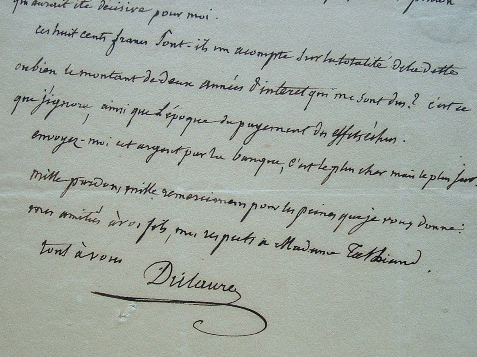 qui aurait été décisive pour moi.
ces huit cents francs sont-ils un acompte sur la totalité de la dette
ou bien le montant de deux années d'interet qui me sont dus? c'est ce
que j'ignore, ainsi que l'époque du payement des effets échus.
envoyez-moi cet argent par la banque, c'est le plus cher mais le plus sur.
mille pardons, mille remerciemens pour les peines que je vous donne.
mes amitiés à vos fils, mes respects à Madame
tout à vous
Dulaure